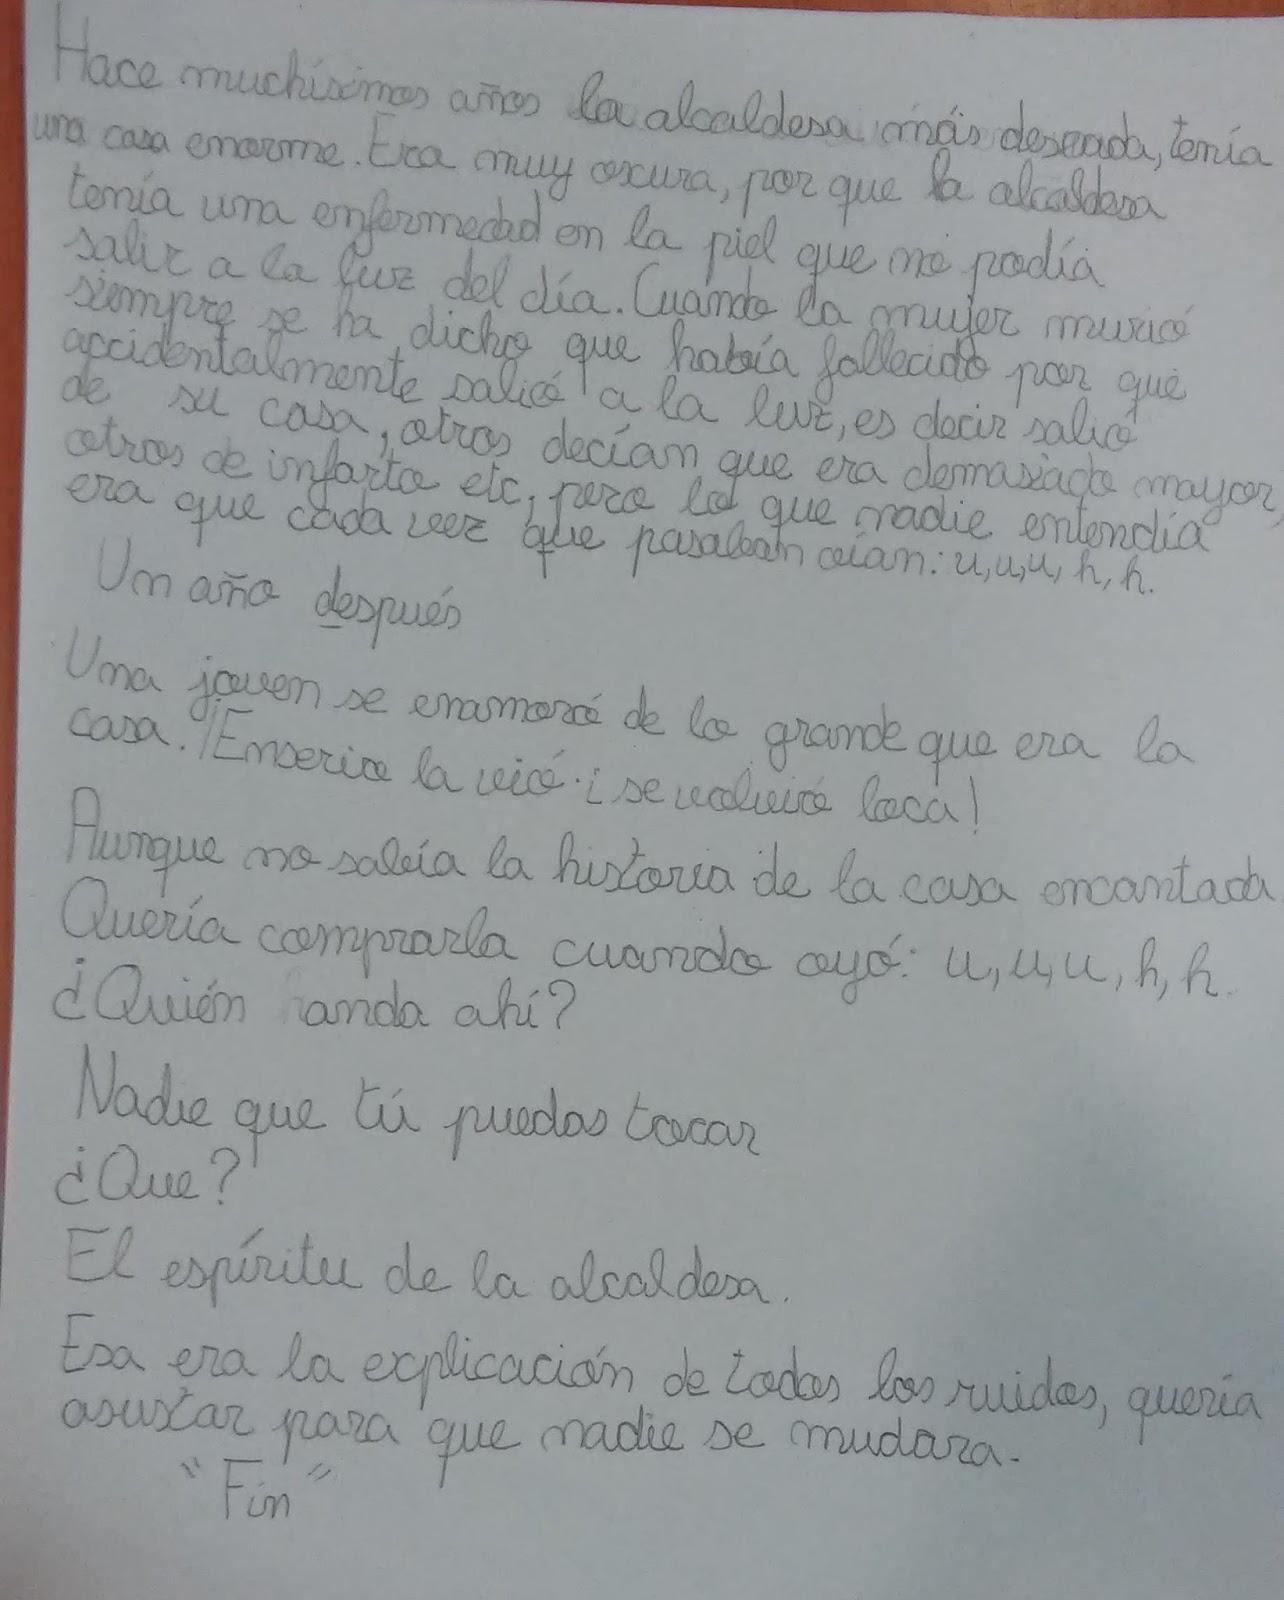 Hace muchísimos años la alcaldesa más deseada, tenía
una casa enorme. Era muy oscura, por que la alcaldesa
tenía una enfermedad en la piel que no podía
salir a la luz del día. Cuando la mujer murió
siempre se ha dicho que había fallecido por que
accidentalmente salió a la luz, es decir salió
de su casa, otros decían que era demasiado mayor,
otros de infarto etc, pero lo que nadie entendía
era que cada vez que pasaban oían: u, u, u, h, h.
Un año después
Una joven se enamoró de lo grande que era la
casa. ¡Enserio la vió. ¡se volvió loca!
Aunque no sabía la historia de la casa encantada
Quería comprarla cuando oyó: u, u, u, h, h.
¿Quién anda ahí?
Nadie que tú puedas tocar
¿Que?
El espíritu de la alcaldesa.
Esa era la explicación de todos los ruidos, quería
asustar para que nadie se mudara.
"Fin"